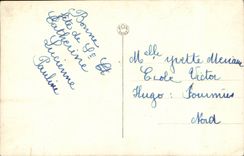 Bonne
Fête de Ste
Catherine
Lucienne
Pauline
Melle Yvette
Ecole Victor
Hugo : Fourmies
Nord